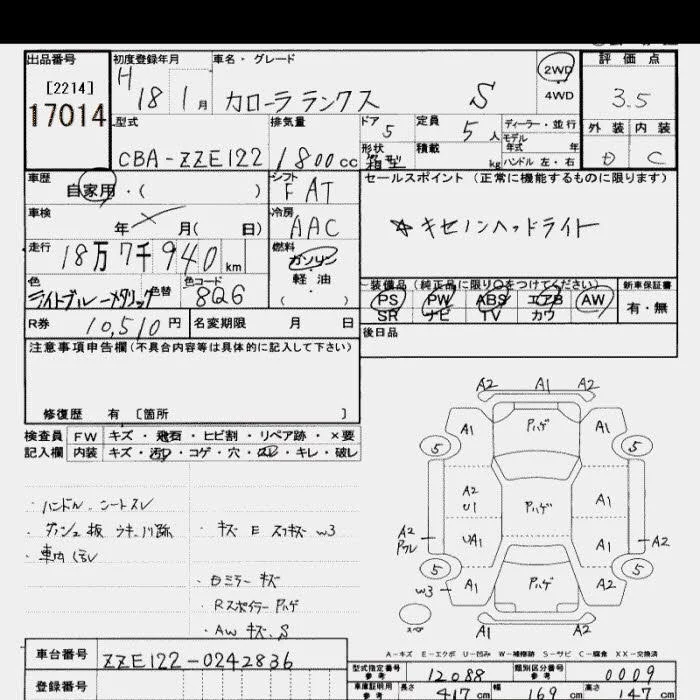 出品番号 初度登録年月 車名・グレード 評価点
[2214]
17014
H 18 1月 カローラランクス S 2WD 4WD 3.5
型式 排気量 ドア 5 定員 5人 ディーラー・並行 外装 内装
モデル年式 年
CBA-ZZE122 1800cc 形状 箱型 積載 kg ハンドル 左・右 D C
車歴 自家用・( ) シフト FAT セールスポイント(正常に機能するものに限ります)
車検 年 月( 日) 冷房 AAC ☆キセノンヘッドライト
走行 18万7千940km 燃料 ガソリン
軽・油
( )
色 ライトブルーメタリック 色替 色コード 8Q6 装備品(純正品に限り○をつけてください) 新車保証書
PS PW ABS エアB AW 有・無
SR ナビ TV カワ
R券 10,510円 名変期限 月 日 後日品
注意事項申告欄(不具合内容等は具体的に記入して下さい)
修復歴 有 〔箇所 〕
検査員 FW キズ・飛石・ヒビ割・リペア跡・×要
記入欄 内装 キズ・汚れ・コゲ・穴・スレ・キレ・破レ
・ハンドル、シートスレ
・ダッシュ板
・キズ E スリキズ W3
・車内
・Dミラーキズ
・Rスポイラーハゲ
・AWキズ、S
A2 A1 A2
A1 ハゲ A1
5 5
A2 U1 ハゲ A1
A2 UA1 A1 A2
5 5
W3 A1 ハゲ A2
スペア A1 A2 A1
A-キズ E-エクボ U-凹み W-補修跡 S-サビ C-腐食 XX-交換済
車台番号 ZZE122-0242836
登録番号
型式指定番号 参考 12088 類別区分番号 参考 0009
車庫証明用 参考 長さ 417cm 幅 169cm 高さ 147cm